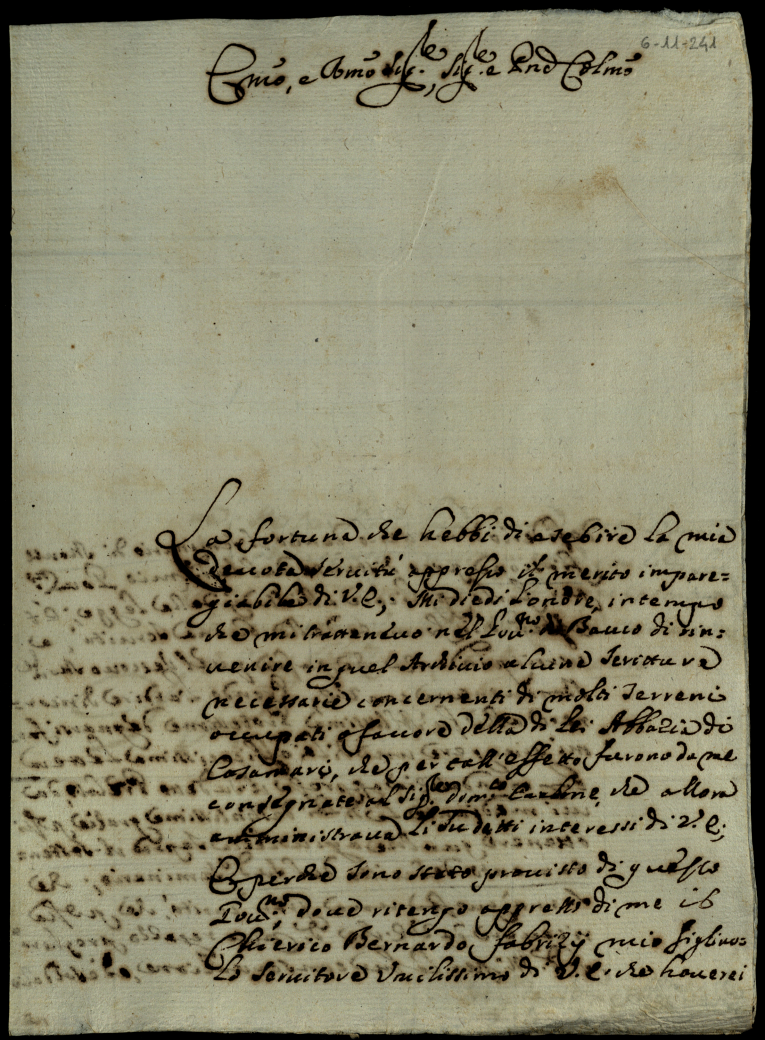 6-11-241
Emo, e Rmo Sig.re, Sig.re e Pne Colmo
La fortuna che hebbi di esebire la mia
deuota seruitù appresso il merito impare=
giabile di V. E., Mi diedi l'onore, in tempo
che mi trattenevo nel Gou.no di Bauco di rin=
uenire in quel Archiuio alcune scritture
necessarie concernenti di molti terreni
occupati à fauore della di Lei Abbazia di
Casamari, che per tall'effetto furono da me
consegniate al Sig.re Dom.co che allora
amministraua li sudetti interessi di V. E.;
E perche sono stato prouisto di questo
Gou.no doue ritengo appresso di me il
Chierico Bernardo Fabrizij mio figliuo=
lo seruitore Vmilissimo di V. E. che hauerei